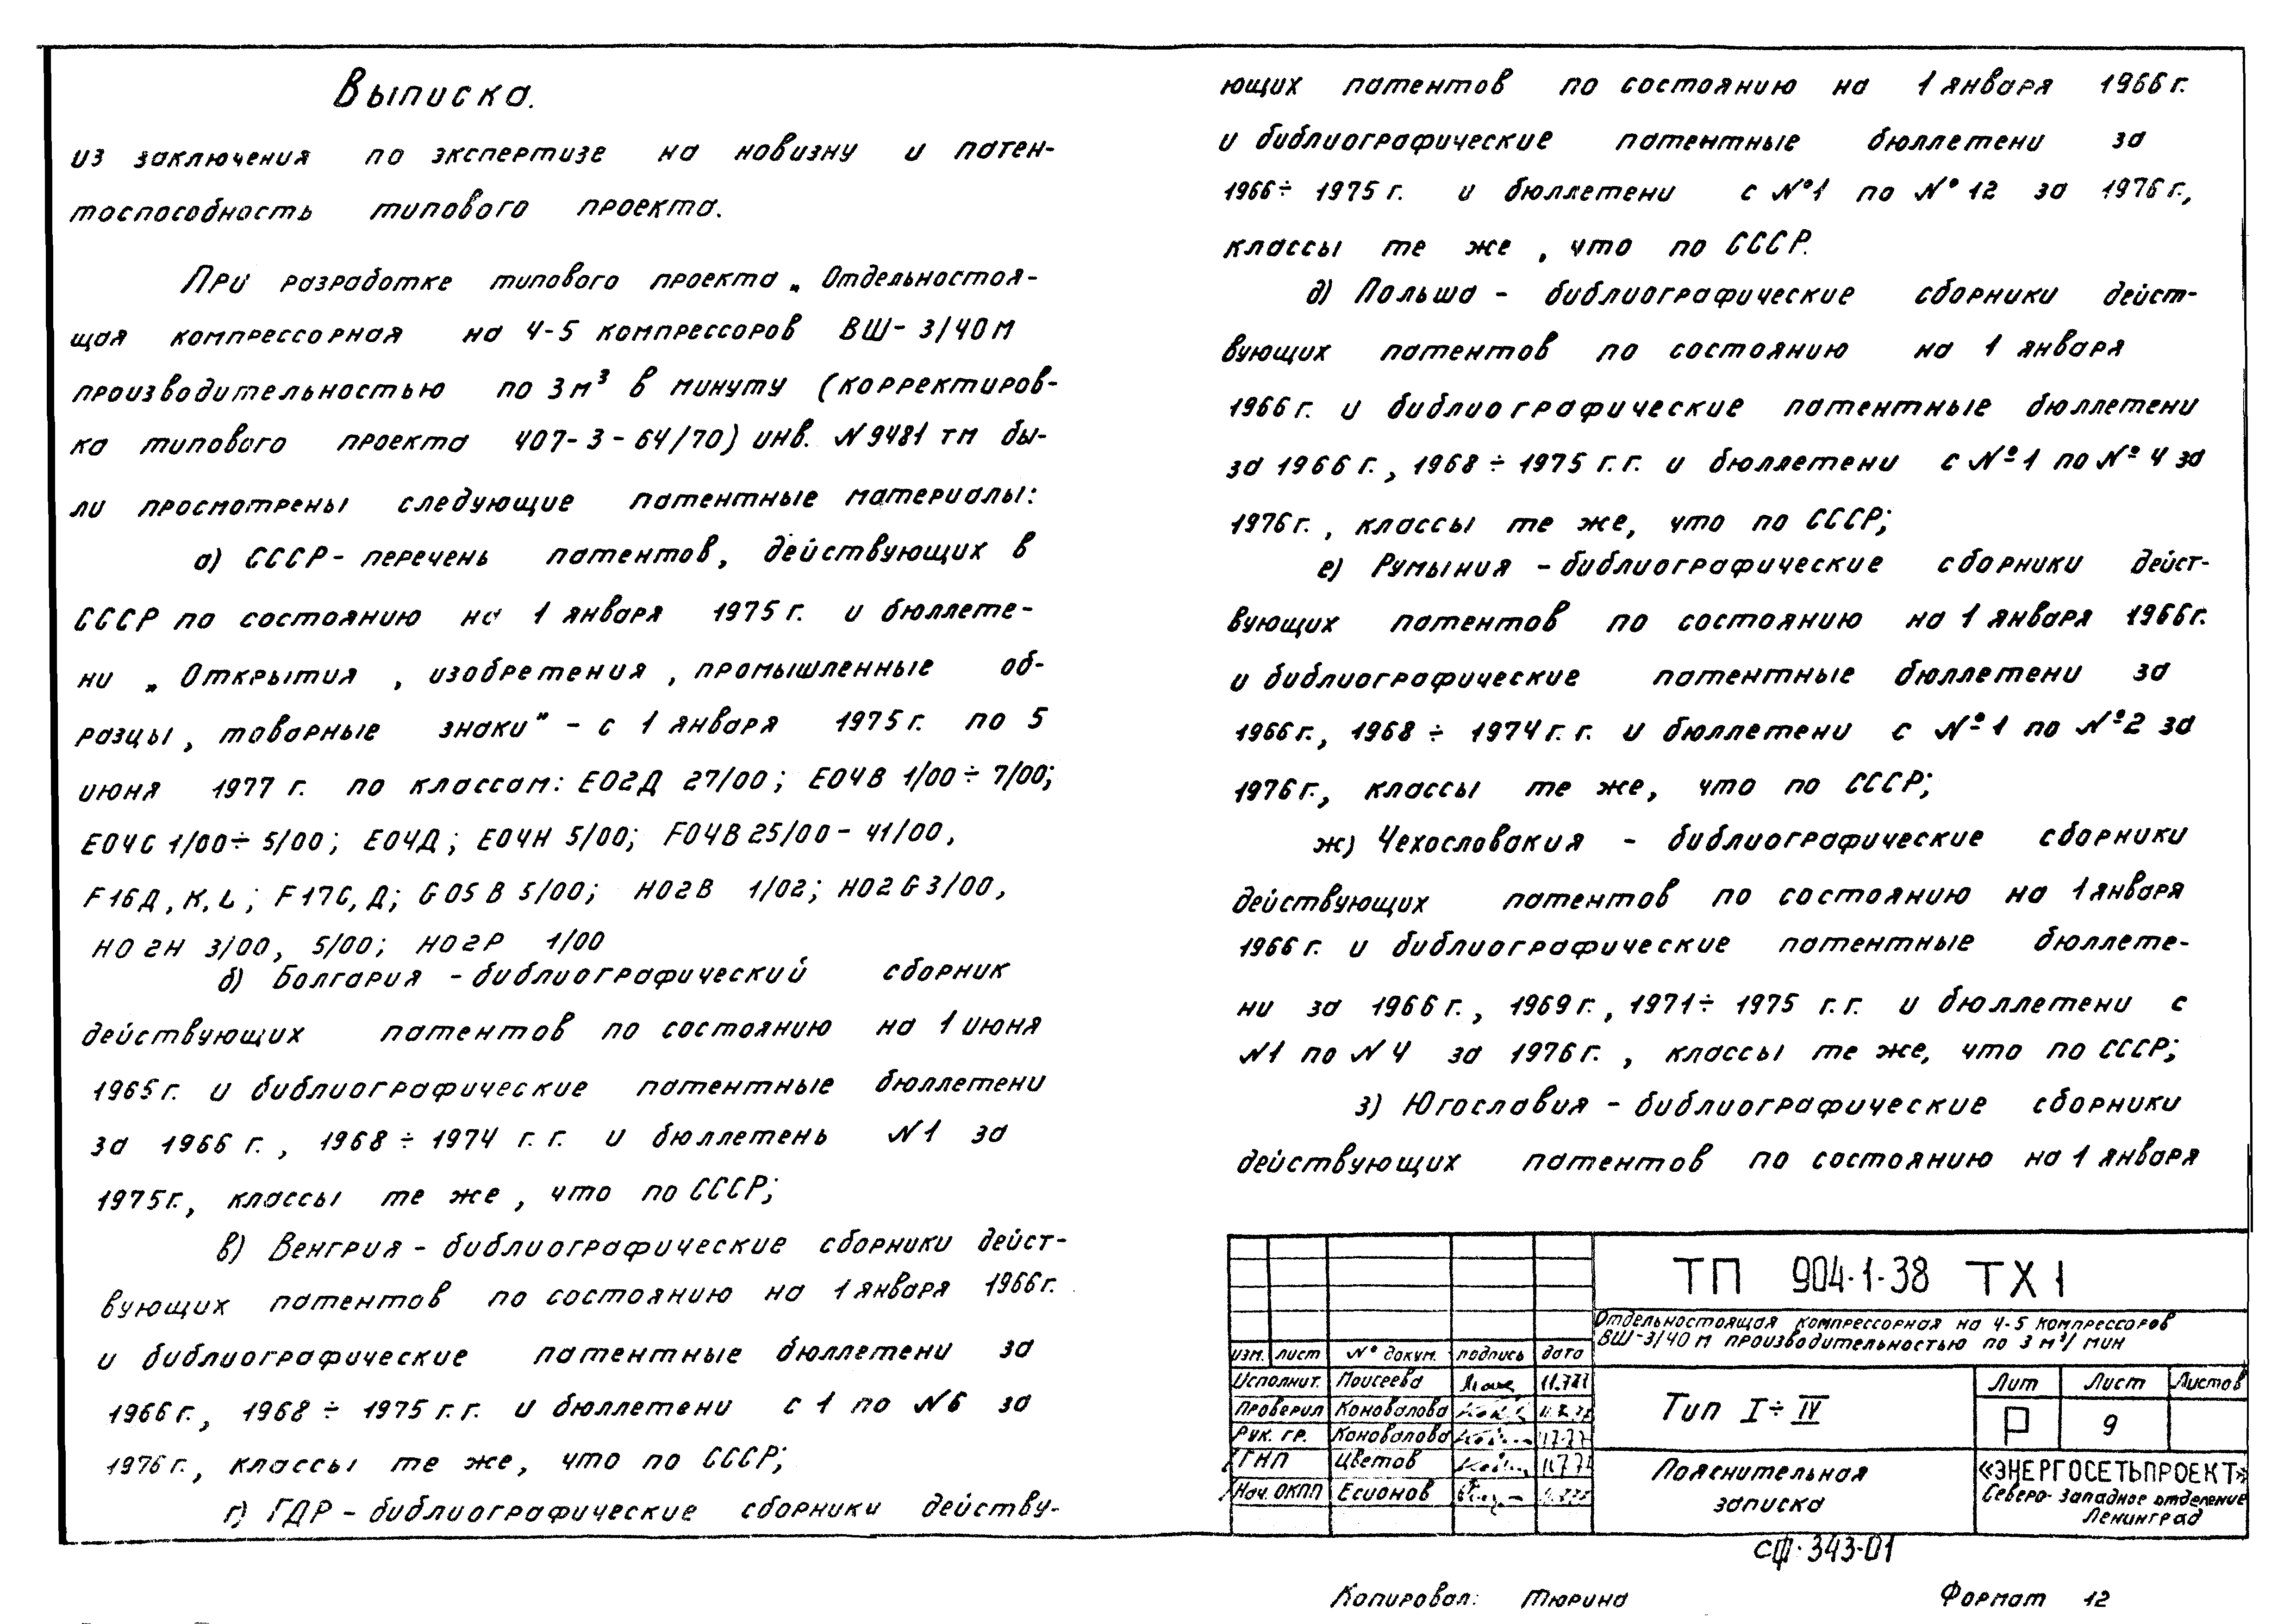 Выписка.
из заключения по экспертизе на новизну и патен-
тоспособность типового проекта.
При разработке типового проекта „ Отдельностоя-
щая компрессорная на 4-5 компрессоров ВШ-3/40М
производительностью по 3м³ в минуту (корректиров-
ка типового проекта 407-3-64/70) инв. N9481 тм бы-
ли просмотрены следующие патентные материалы:
а) СССР- перечень патентов, действующих в
СССР по состоянию на 1 января 1975г. и бюллете-
ни „ Открытия , изобретения , промышленные об-
разцы, товарные знаки" - с 1 января 1975г. по 5
июня 1977 г. по классам: Е02Д 27/00; Е04В 1/00÷7/00;
Е04С 1/00÷5/00; Е04Д; Е04Н 5/00; F04В 25/00-41/00,
F16Д, К, L; F17С, Д; G05В 5/00; Н02В 1/02; Н02G 3/00,
Н02Н 3/00, 5/00; Н02Р 1/00
б) Болгария - библиографический сборник
действующих патентов по состоянию на 1 июня
1965г. и библиографические патентные бюллетени
за 1966 г., 1968÷1974 г.г. и бюллетень N1 за
1975г., классы те же, что по СССР;
в) Венгрия - библиографические сборники дейст-
вующих патентов по состоянию на 1 января 1966г.
и библиографические патентные бюллетени за
1966г., 1968÷1975 г.г. и бюллетени с 1 по N6 за
1976г., классы те же, что по СССР;
г) ГДР - библиографические сборники действу-
ющих патентов по состоянию на 1 января 1966г.
и библиографические патентные бюллетени за
1966÷1975г. и бюллетени с №1 по №12 за 1976г.,
классы те же, что по СССР.
д) Польша - библиографические сборники дейст-
вующих патентов по состоянию на 1 января
1966г. и библиографические патентные бюллетени
за 1966г., 1968÷1975 г.г. и бюллетени с №1 по №4 за
1976г., классы те же, что по СССР;
е) Румыния - библиографические сборники дейст-
вующих патентов по состоянию на 1 января 1966г.
и библиографические патентные бюллетени за
1966г., 1968÷1974г.г. и бюллетени с №1 по №2 за
1976г., классы те же, что по СССР;
ж) Чехословакия - библиографические сборники
действующих патентов по состоянию на 1 января
1966г. и библиографические патентные бюллете-
ни за 1966г., 1969г., 1971÷1975 г.г. и бюллетени с
N1 по N4 за 1976г., классы те же, что по СССР;
з) Югославия - библиографические сборники
действующих патентов по состоянию на 1 января
ТП 904-1-38 ТХ1
Отдельностоящая компрессорная на 4-5 компрессоров
ВШ-3/40м производительностью по 3 м³/мин
изм. лист № докум. подпись дата
Исполнит. Моисеева
Проверил Коновалова
Рук. гр. Коновалова
ГНП Цветов
Нач. ОКПП Есионов
Тип I÷IV
Лит Лист Листов
Р 9
Пояснительная
записка
«ЭНЕРГОСЕТЬПРОЕКТ»
Северо-Западное отделение
Ленинград
СФ-343-01
Копировал: Тюрина Формат 12